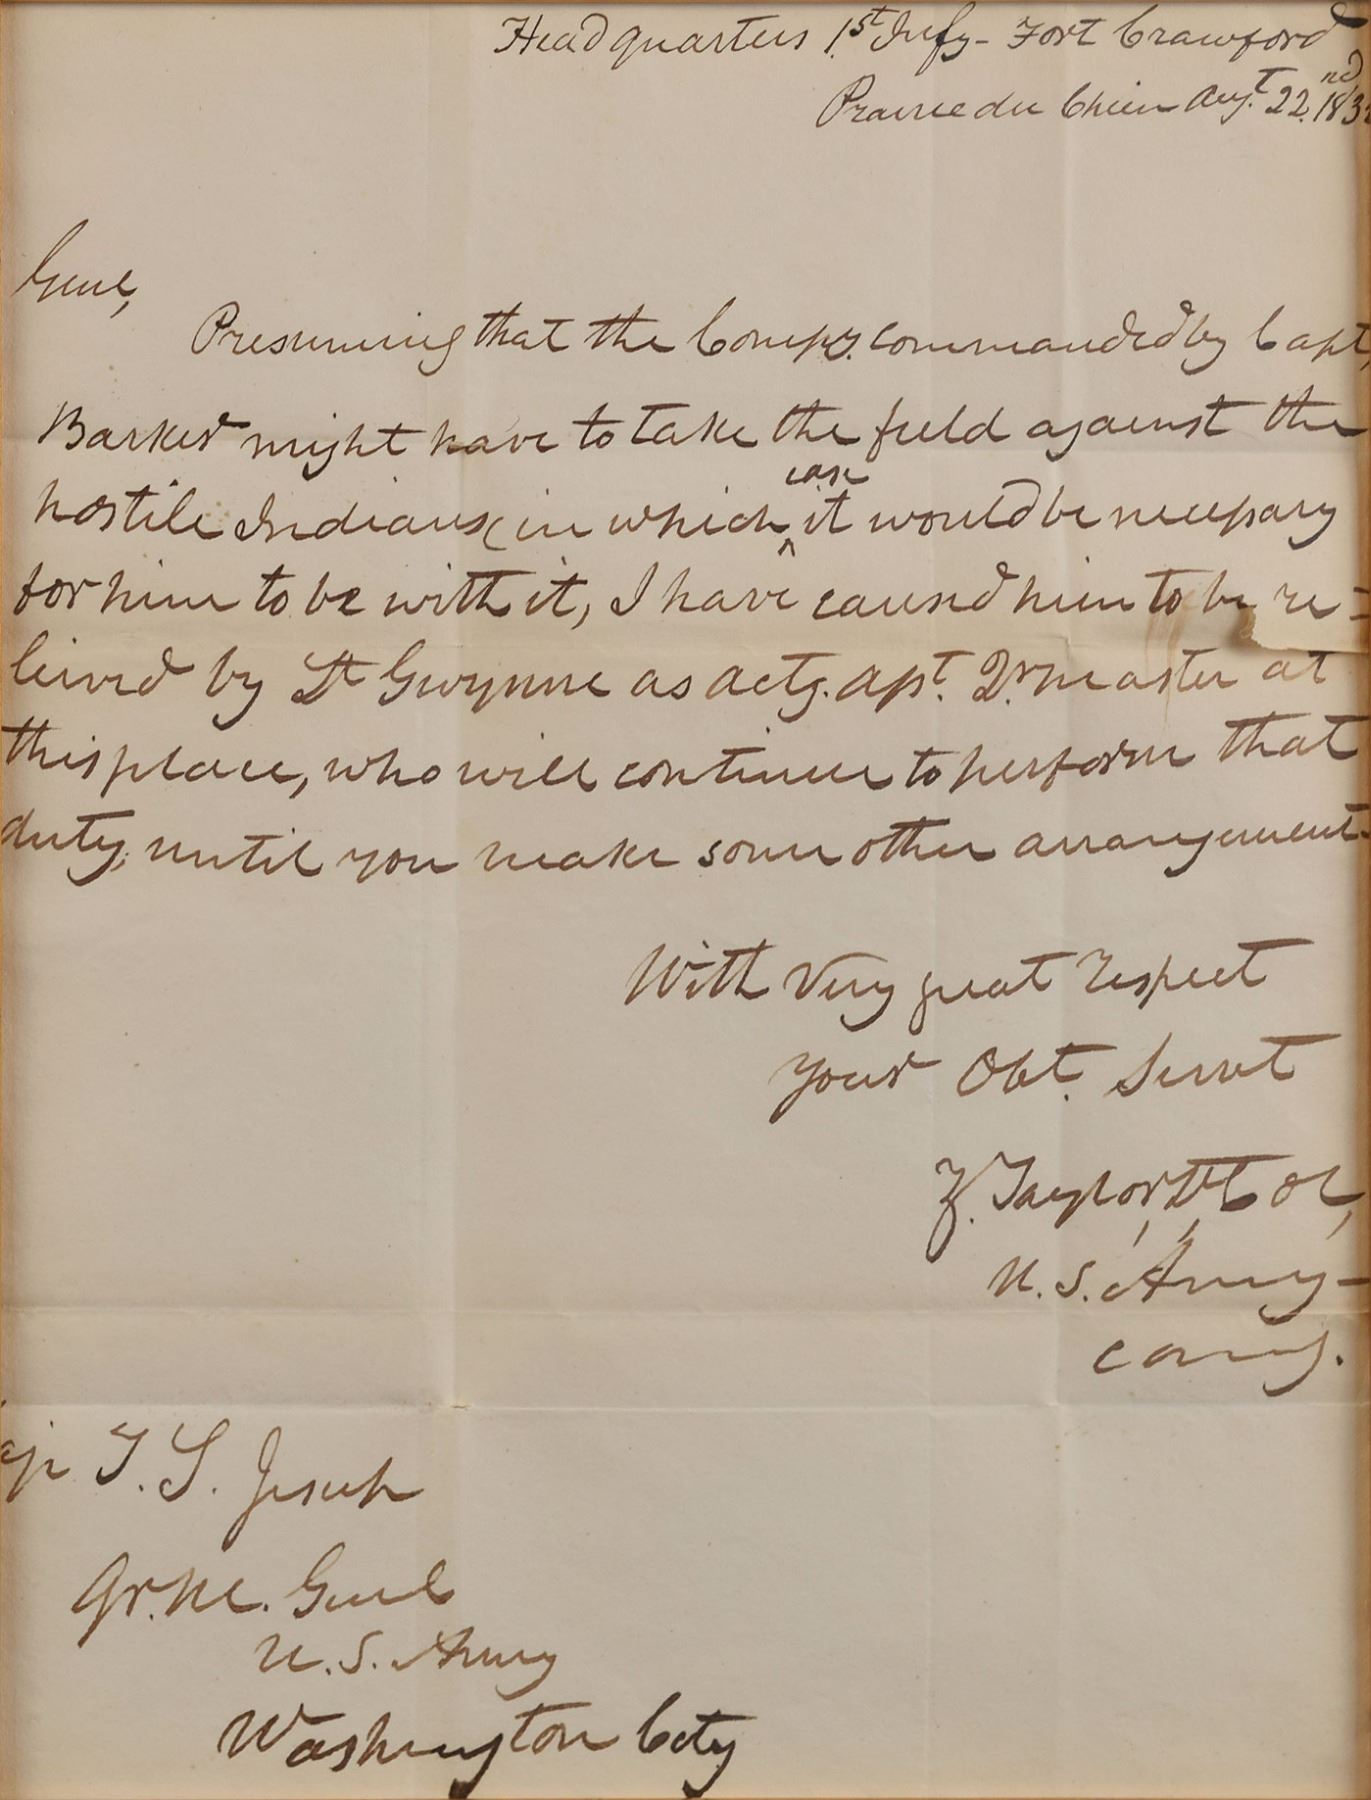 Head quarters 1st Infy - Fort Crawford
Prairie du Chien Augt. 22nd 183
Genl,
Presuming that the Compy. commanded by Capt,
Barker might have to take the field against the
hostile Indians, in which case it would be necessary
for him to be with it, I have caused him to be re=
leived by Lt Gwynne as actg. asst. Qr. master at
this place, who will continue to perform that
duty, until you make some other arrangement.
With very great respect
your Obt. Servt
Z. Taylor, Lt, Col,
U. S. Army -
comg.
T. S. Jesup
Qr. M. Genl
U. S. Army
Washington City